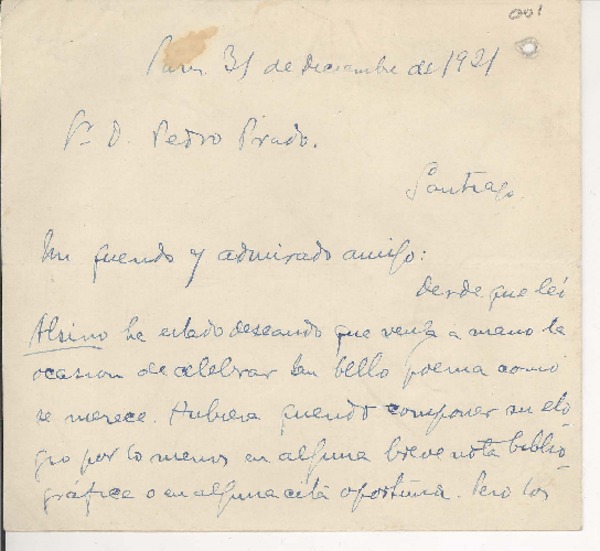 001
Paris 31 de Diciembre de 1921
Sr. D. Pedro Prado.
Santiago
Mi querido y admirado amigo:
Desde que leí
Alsino he estado deseando que venga a mano la
ocasion de celebrar tan bello poema como
se merece. Hubiera querido componer su elo-
gio por lo menos en alguna breve nota biblio-
gráfica o en alguna cita oportuna. Pero los